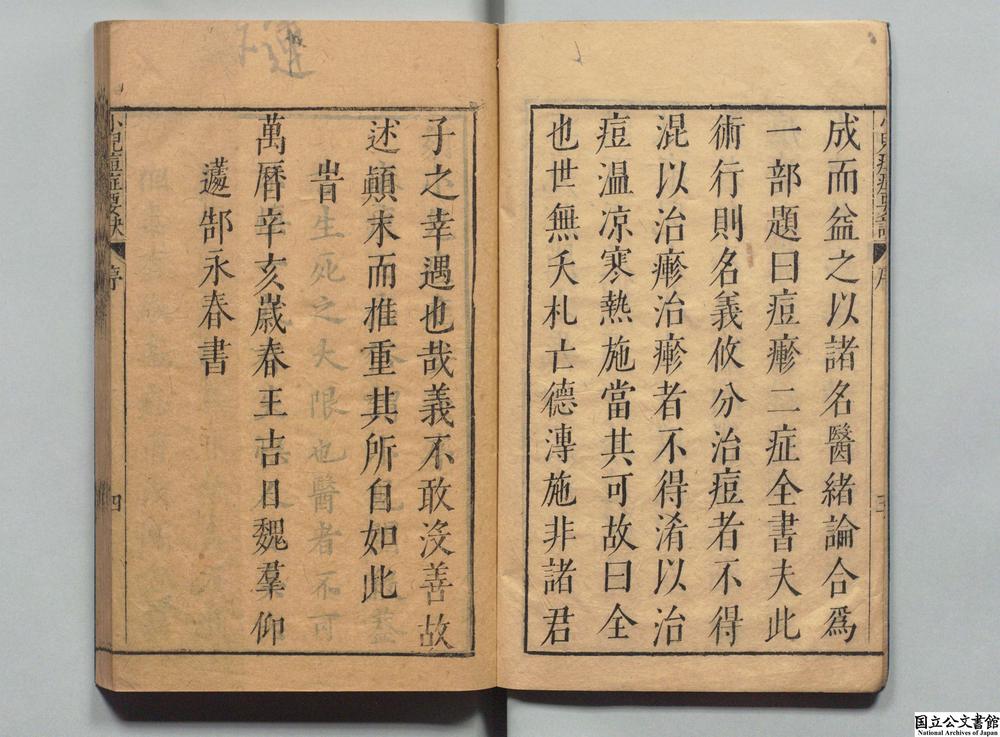 成而益之以諸名醫緒論合爲
一部題曰痘瘮二症全書夫此
術行則名義攸分治痘者不得
混以治瘮治瘮者不得淆以治
痘温凉寒熱施當其可故曰全
也世無夭札亡德溥施非諸君
子之幸遇也哉義不敢沒善故
述顛末而推重其所自如此
旹
萬曆辛亥嵗春王吉日魏羣仰
蘧郜永春書
序
四
国立公文書館
National Archives of Japan